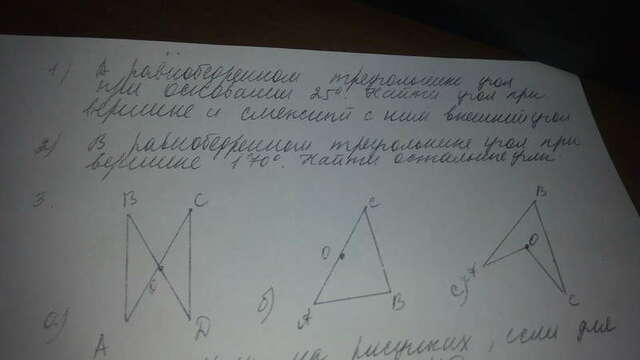 1) В равнобедренном треугольнике угол
при основании 25°. Найти угол при
вершине и смежный с ним внешний угол
2) В равнобедренном треугольнике угол при
вершине 170°. Найти остальные углы.
3.
B C C B
O O O
A B C
а) A D б) в)
на рисунках, если для